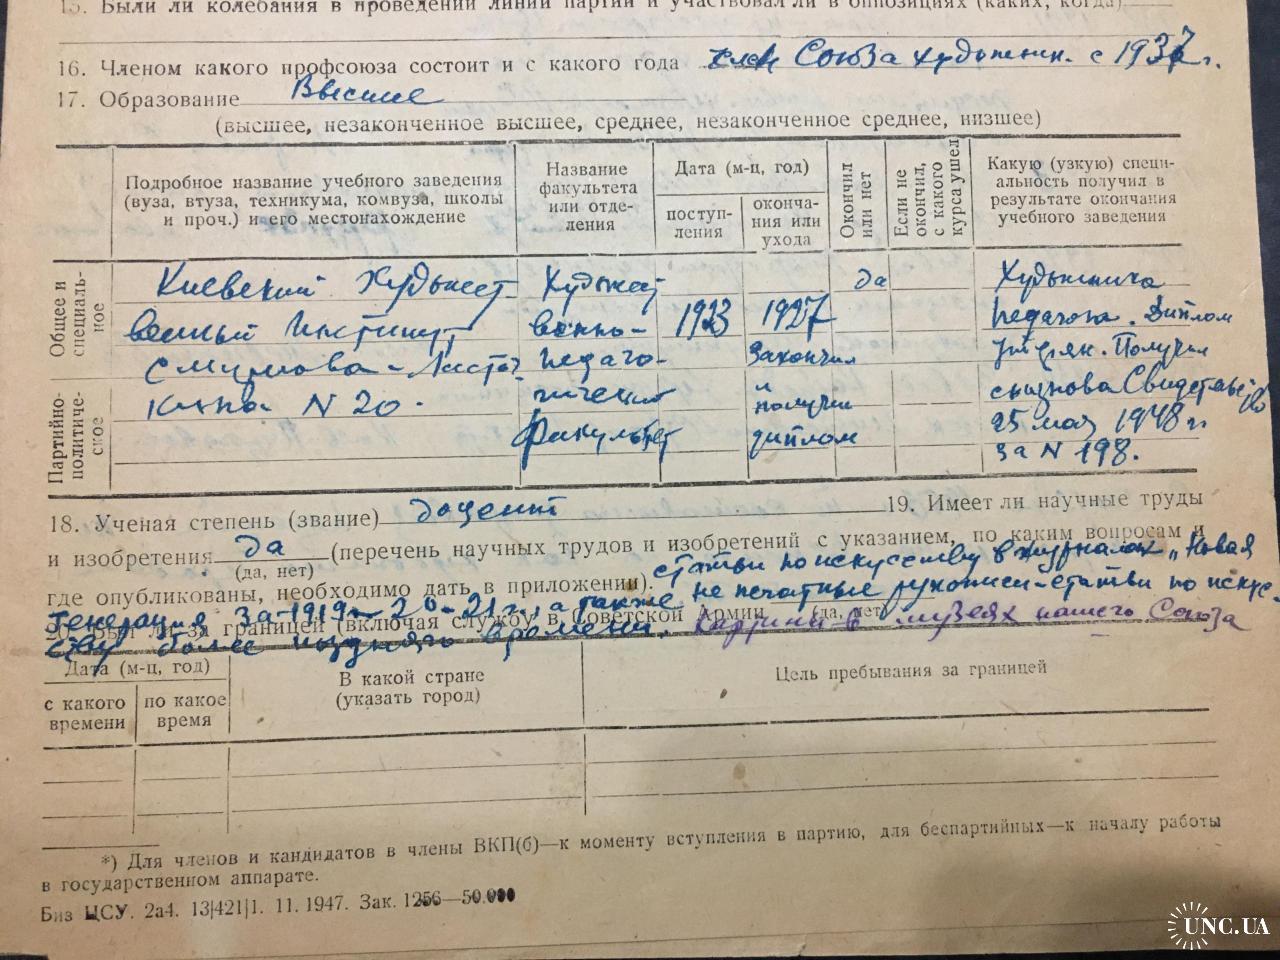 15. Были ли колебания в проведении линии партии и участвовал ли в оппозициях (каких, когда)
16. Членом какого профсоюза состоит и с какого года член Союза художник. с 1937 г.
17. Образование Ввысшее
(высшее, незаконченное высшее, среднее, незаконченное среднее, низшее)
Подробное название учебного заведения
(вуза, втуза, техникума, комвуза, школы
и проч.) и его местонахождение
Название
факультета
или отде-
ления
Дата (м-ц, год)
поступ-
ления
оконча-
ния или
ухода
Окончил
или нет
Если не
окончил,
с какого
курса ушел
Какую (узкую) специ-
альность получил в
результате окончания
учебного заведения
Общее и
специаль-
ное
Партийно-
политиче-
ское
Киевский Художест
венный Институт
Смирнова-Ласточ
кина N 20.
Художест
венно-
педаго-
гический
факультет
1923
1927
Закончил
и
получил
диплом
да
Художника
педагога. Диплом
утерян. Получил
Свидетель
25 мая 1948 г.
за N 198.
18. Ученая степень (звание) доцент
19. Имеет ли научные труды
и изобретения да (перечень научных трудов и изобретений с указанием, по каким вопросам и
(да, нет)
где опубликованы, необходимо дать в приложении). статьи по искусству в журналах „Новая
Генерация за 1919-20-21 г., а также не печатные рукописи-статьи по искус-
20. Был ли за границей (включая службу в Советской Армии (да, нет)
более позднего времени. Картины в музеях нашего Союза
Дата (м-ц, год)
с какого
времени
по какое
время
В какой стране
(указать город)
Цель пребывания за границей
*) Для членов и кандидатов в члены ВКП(б)—к моменту вступления в партию, для беспартийных—к началу работы
в государственном аппарате.
Биз ЦСУ. 2а4. 13|421|1. 11. 1947. Зак. 1256—50.000
UNC.UA